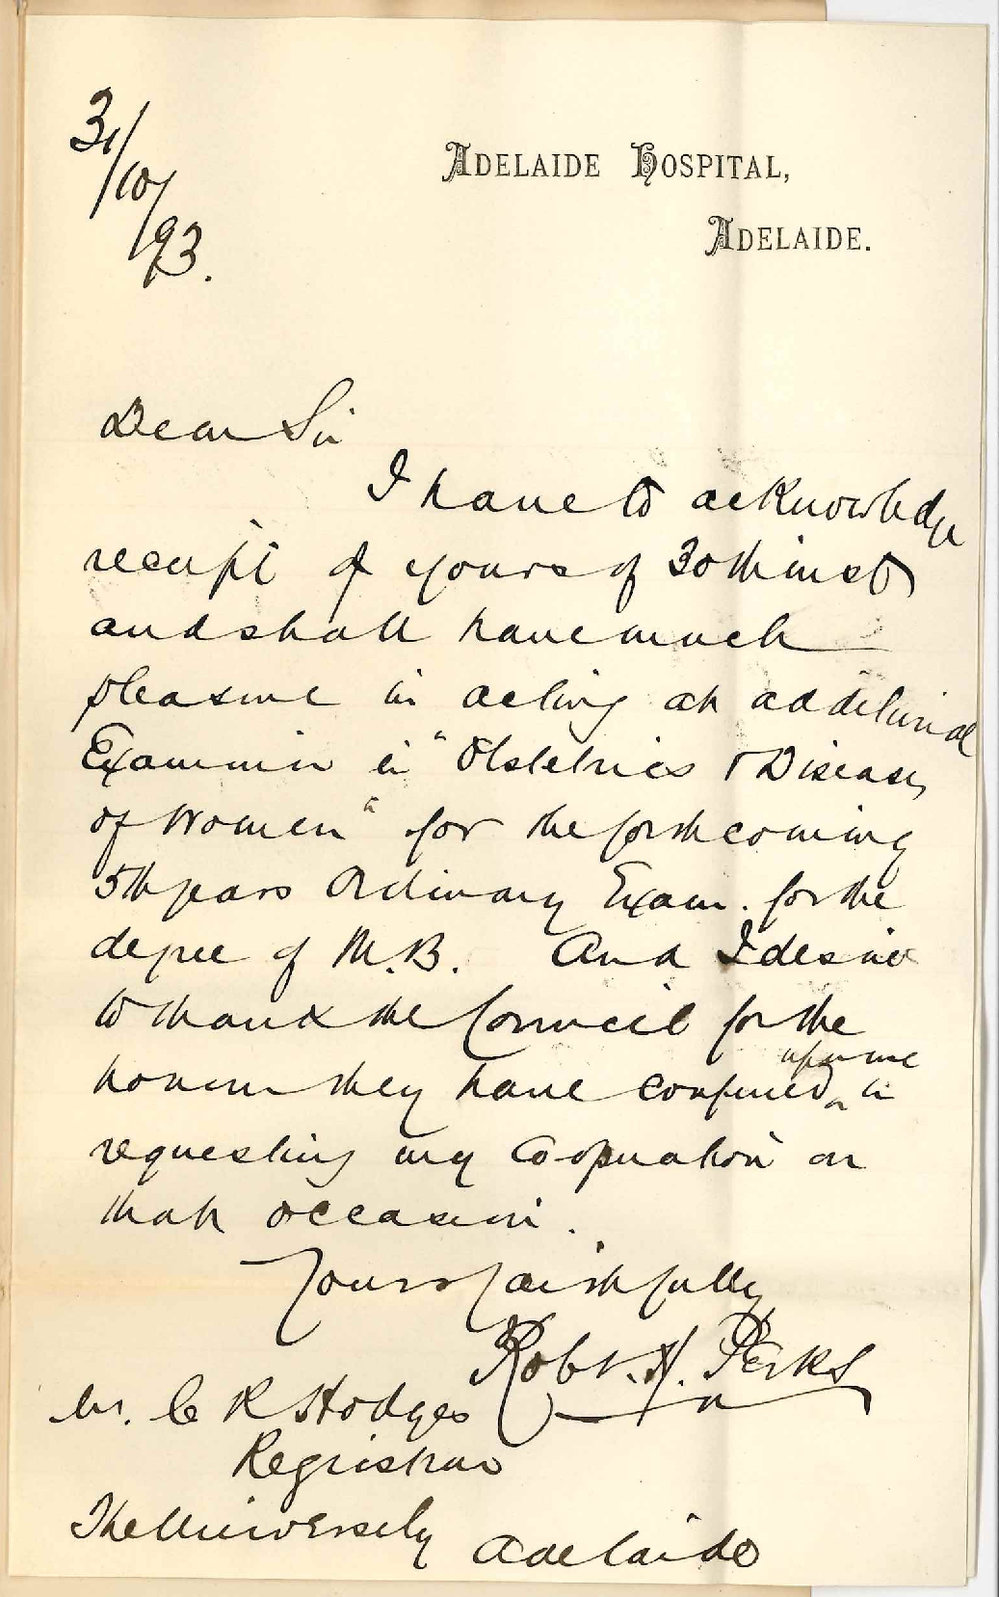 31/10/93.
ADELAIDE HOSPITAL,
ADELAIDE.
Dear Sir
I have to acknowledge
receipt of yours of 30th inst
and shall have much
pleasure in acting as additional
Examiner in "Obstetrics & Diseases
of Women" for the forthcoming
5th years Ordinary Exam. for the
degree of M.B. And I desire
to thank the Council for the
upon me
honour they have conferred ^ in
requesting my Co-operation on
that occasion.
Yours faithfully
Robt. H. Perks
Mr. C R Hodges
Registrar
The University Adelaide